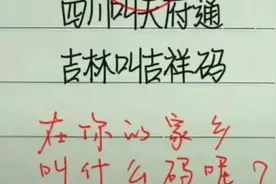 四川叫天府通
吉林叫吉祥码
在你的家乡
叫什么码呢？